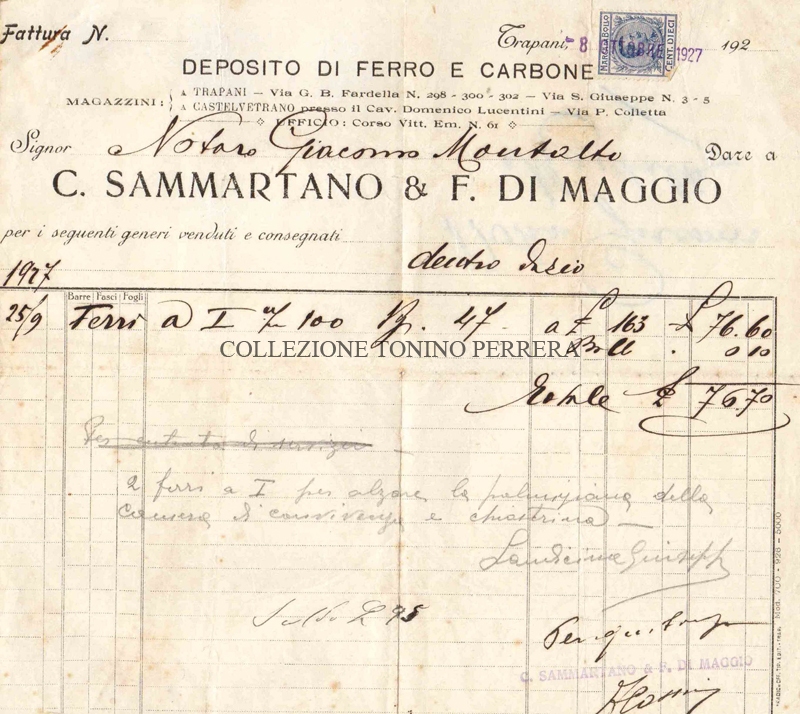 Fattura N.
Trapani, -8 OTTOBRE 1927 192
MARCA DA BOLLO
CENT. DIECI
DEPOSITO DI FERRO E CARBONE
MAGAZZINI: A TRAPANI – Via G. B. Fardella N. 298 - 300 - 302 – Via S. Giuseppe N. 3 - 5
A CASTELVETRANO presso il Cav. Domenico Lucentini – Via P. Colletta
UFFICIO: Corso Vitt. Em. N. 61
Signor Notaro Giacomo Montalto Dare a
C. SAMMARTANO & F. DI MAGGIO
per i seguenti generi venduti e consegnati
dentro dazio
1927
Barre Fasci Fogli
25/9 Ferri a I 100 Kg. 47 a £ 163 £ 76.60
COLLEZIONE TONINO PERRERA
Boll . 0 10
Totale £ 76.70
Per entrata di servizio
2 ferri a I per alzare la della
camera di convivenza e
Giuseppe
£ 95
Per
C. SAMMARTANO & F. DI MAGGIO